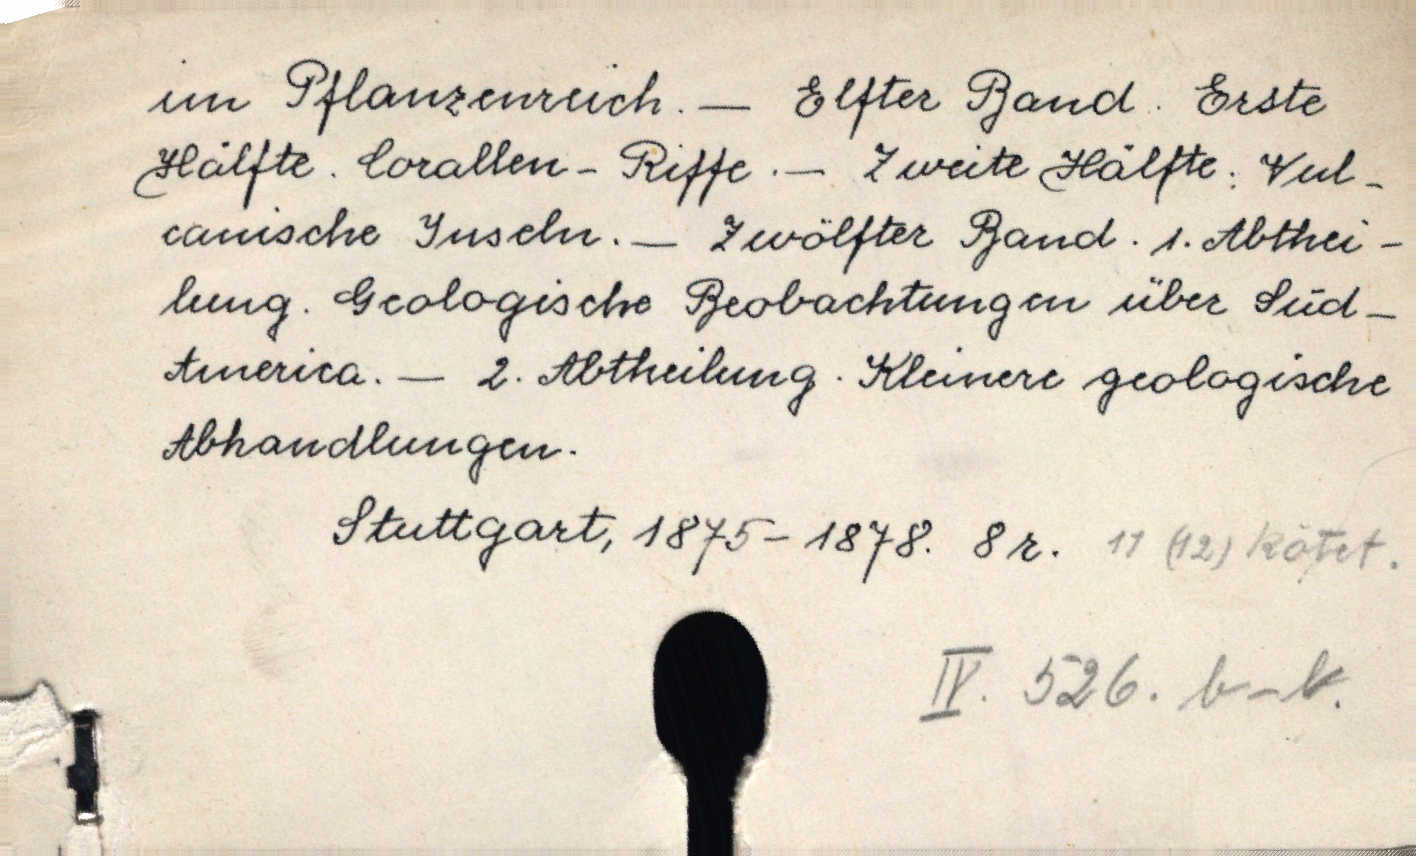 im Pflanzenreich. — Elfter Band. Erste
Hälfte. Corallen-Riffe. — Zweite Hälfte: Vul-
canische Inseln. — Zwölfter Band. 1. Abthei-
lung. Geologische Beobachtungen über Süd-
America. — 2. Abtheilung. Kleinere geologische
Abhandlungen.
Stuttgart, 1875-1878. 8 r. 11 (12) kötet.
IV. 526. b-k.